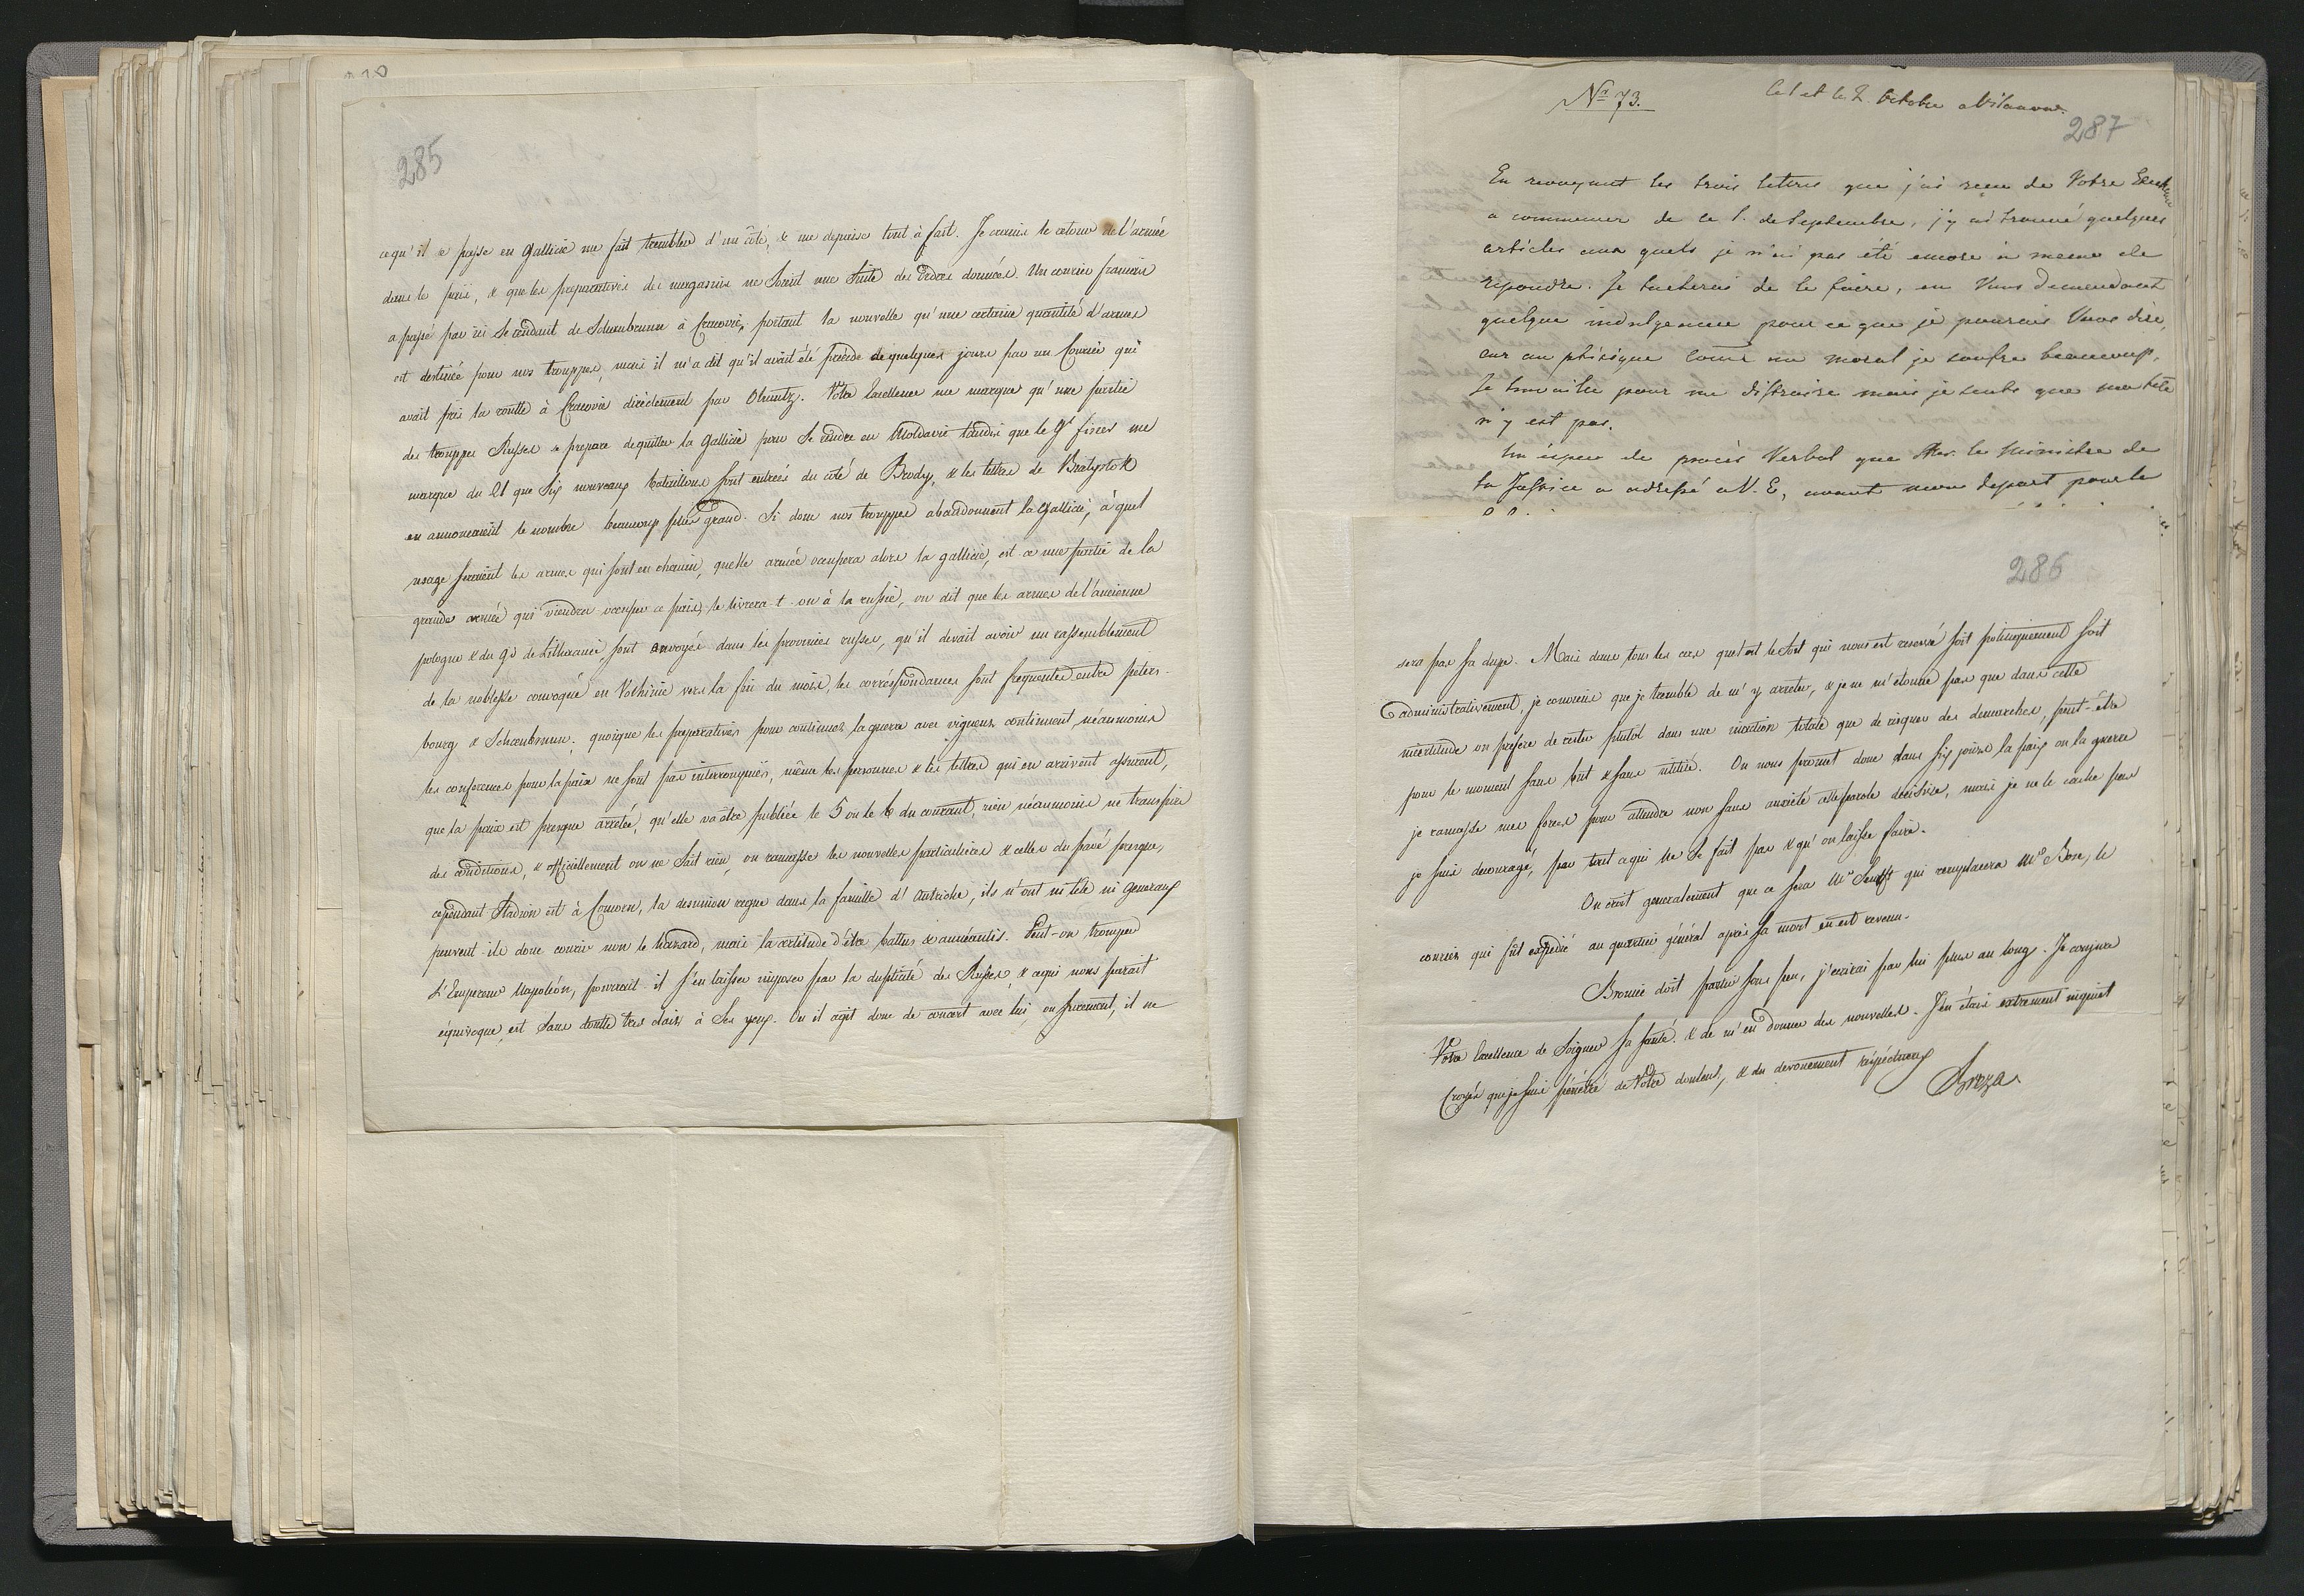 285
ce qu'il se passe en Gallicie me fait trembler d'un côté, & me depaise tout à fait. Je crains le retour de l'armée
dans le païs, & que les preparatives des magasins ne soient une suite des ordres données. Un courier francais
a passé par ici se rendant de Schenbrunn à Cracovie, portant la nouvelle qu'une certaine quantité d'armes
est destinée pour nos trouppes, mais il m'a dit qu'il avait été précédé de quelques jours par un Courier qui
avait pris la routte à Cracovie directement par Olmutz. Votre Excellence me marque qu'une partie
des trouppes Russes se prepare de quitter la Gallicie pour se rendre en Moldavie tandis que le Gl fiszer me
marque du 21 que six nouveaux bataillons sont entrées du coté de Brody, & les lettres de Bialystok
en annoncaient le nombre beaucoup plus grand. Si donc nos trouppes abandonnent la Gallicie, à quel
usage seraient les armes qui sont en chemin, quelle armée occupera alors la gallicie, est ce une partie de la
grande armée qui viendra occuper ce païs, le livrera-t-on à la russie, on dit que les armes de l'ancienne
pologne & du Gd de Lithuanie, sont envoyés dans les provinces russes, qu'il devait avoir un rassemblement
de la noblesse convoquée en Volhinie vers la fin du mois, les correspondances sont frequentes entre peters-
bourg & Schoenbrunn. quoique les preparatives pour continuer la guerre avec vigueur continuent, néanmoins
les conferences pour la paix ne sont pas interrompues, même les personnes & les lettres qui en arrivent assurent,
que la paix est presque arretée, qu'elle va être publiée le 5 ou le 6 du courant, rien néanmoins ne transpire
des conditions, & officiellement on ne sait rien, on ramasse les nouvelles particulieres & celles du pavé presque,
cependant Stadion est à Comorn, la desunion regne dans la famille d'Autriche, ils n'ont ni tête ni Generaux
peuvent-ils donc courir non le hazard, mais la certitude d'être battus & anneantis. Peut-on tromper
L'Empereur Napoléon, pourrait-il s'en laisser imposer par la duplicité des Russes, & ce qui nous parait
equivoque, est sans doutte tres clair à ses yeux. Ou il agit donc de concert avec lui, ou surement, il ne
No 73.
le 1 et le 2. Octobre a Vilanow.
287
En revoyant les trois lettres que j'ai recu de Votre Excellence
a commencer de le 1. de Septembre, j'y ai trouvé quelques
articles aux quels je n'ai pas été encore à meme de
repondre. Je tacherai de le faire, en Vous demendant
quelque indulgeance pour ce que je pourais Vous dire,
car au phisique come au moral je soufre beaucoup.
Je travaille pour me distraire mais je sents que ma tete
n'y est pas.
Un éspece de procès Verbal que Mr. le Ministre de
la Justice a adressé a V. E, avant mon depart pour le
286
sera pas sa dupe. Mais dans tous les cas quel est le sort qui nous est reservé soit politiquement soit
administrativement, je conviens que je tremble de m'y arreter, & je ne m'etonne pas que dans cette
incertitude on prefere de rester plutôt dans une inaction totale que de risquer des demarches, peut-être
pour le moment sans but & sans utilité. On nous promet donc dans six jours la paix ou la guerre
je ramasse mes forces pour attendre non sans anxieté cette parole décisive, mais je ne le cache pas
je suis decouragé, par tout ce qui ne se fait pas & qu'on laisse faire.
On croit generalement que ce sera Mr Senfft qui remplacera Mr Bose, le
courier qui fût expedié au quartier général après sa mort en est revenu.
Bronic doit partir sous peu, j'ecrirai par lui plus au long. Je conjure
Votre Excellence de soigner sa santé. & de m'en donner des nouvelles. J'en étais extrement inquiet
Croyés que je suis pénétré de Votre douleur, & du devouement respectueux
Breza